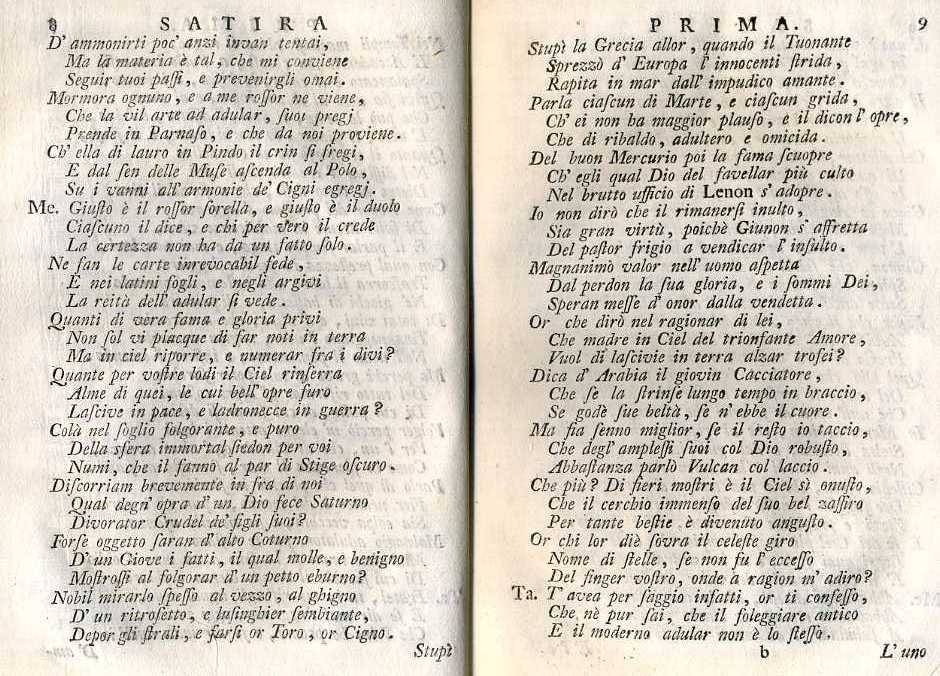 8 SATIRA
D' ammonirti poc' anzi invan tentai,
Ma la materia è tal, che mi conviene
Seguir tuoi paſſi, e prevenirgli omai.
Mormora ognuno, e a me roſſor ne viene,
Che la vil arte ad adular, ſuoi pregj
Prende in Parnaſo, e che da noi proviene.
Ch' ella di lauro in Pindo il crin ſi fregi,
E dal ſen delle Muſe aſcenda al Polo,
Su i vanni all' armonie de' Cigni egregj.
Me. Giuſto è il roſſor ſorella, e giuſto è il duolo
Ciaſcuno il dice, e chi per vero il crede
La certezza non ha da un fatto ſolo.
Ne fan le carte inrevocabil fede,
E nei latini fogli, e negli argivi
La reità dell' adular ſi vede.
Quanti di vera fama e gloria privi
Non ſol vi placque di far noti in terra
Ma in ciel riporre, e numerar fra i divi?
Quante per voſtre lodi il Ciel rinſerra
Alme di quei, le cui bell' opre furo
Laſcive in pace, e ladronecce in guerra?
Colà nel ſoglio folgorante, e puro
Della sfera immortal ſiedon per voi
Numi, che il fanno al par di Stige oſcuro.
Diſcorriam brevemente in fra di noi
Qual degn' opra d' un Dio fece Saturno
Divorator Crudel de' figli ſuoi?
Forſe oggetto ſaran d' alto Coturno
D' un Giove i fatti, il qual molle, e benigno
Moſtroſſi al folgorar d' un petto eburno?
Nobil mirarlo ſpeſſo al vezzo, al ghigno
D' un ritroſetto, e luſinghier ſembiante,
Depor gli ſtrali, e farſi or Toro, or Cigno.
Stupì
PRIMA. 9
Stupì la Grecia allor, quando il Tuonante
Sprezzò d' Europa l' innocenti ſtrida,
Rapita in mar dall' impudico amante.
Parla ciaſcun di Marte, e ciaſcun grida,
Ch' ei non ha maggior plauſo, e il dicon l' opre,
Che di ribaldo, adultero e omicida.
Del buon Mercurio poi la fama ſcuopre
Ch' egli qual Dio del favellar più culto
Nel brutto ufficio di Lenon s' adopre.
Io non dirò che il rimanerſi inulto,
Sia gran virtù, poichè Giunon s' affretta
Del paſtor frigio a vendicar l' inſulto.
Magnanimo valor nell' uomo aſpetta
Dal perdon la ſua gloria, e i ſommi Dei,
Speran meſſe d' onor dalla vendetta.
Or che dirò nel ragionar di lei,
Che madre in Ciel del trionfante Amore,
Vuol di laſcivie in terra alzar trofei?
Dica d' Arabia il giovin Cacciatore,
Che ſe la ſtrinſe lungo tempo in braccio,
Se godè ſue beltà, ſe n' ebbe il cuore.
Ma fia ſenno miglior, ſe il reſto io taccio,
Che degl' ampleſſi ſuoi col Dio robuſto,
Abbaſtanza parlò Vulcan col laccio.
Che più? Di fieri moſtri è il Ciel sì onuſto,
Che il cerchio immenſo del ſuo bel zaffiro
Per tante beſtie è divenuto anguſto.
Or chi lor diè ſovra il celeſte giro
Nome di ſtelle, ſe non fu l' ecceſſo
Del finger voſtro, onde a ragion m' adiro?
Ta. T' avea per ſaggio infatti, or ti confeſſo,
Che nè pur ſai, che il foleggiare antico
E il moderno adular non è lo ſteſſo.
b L' uno